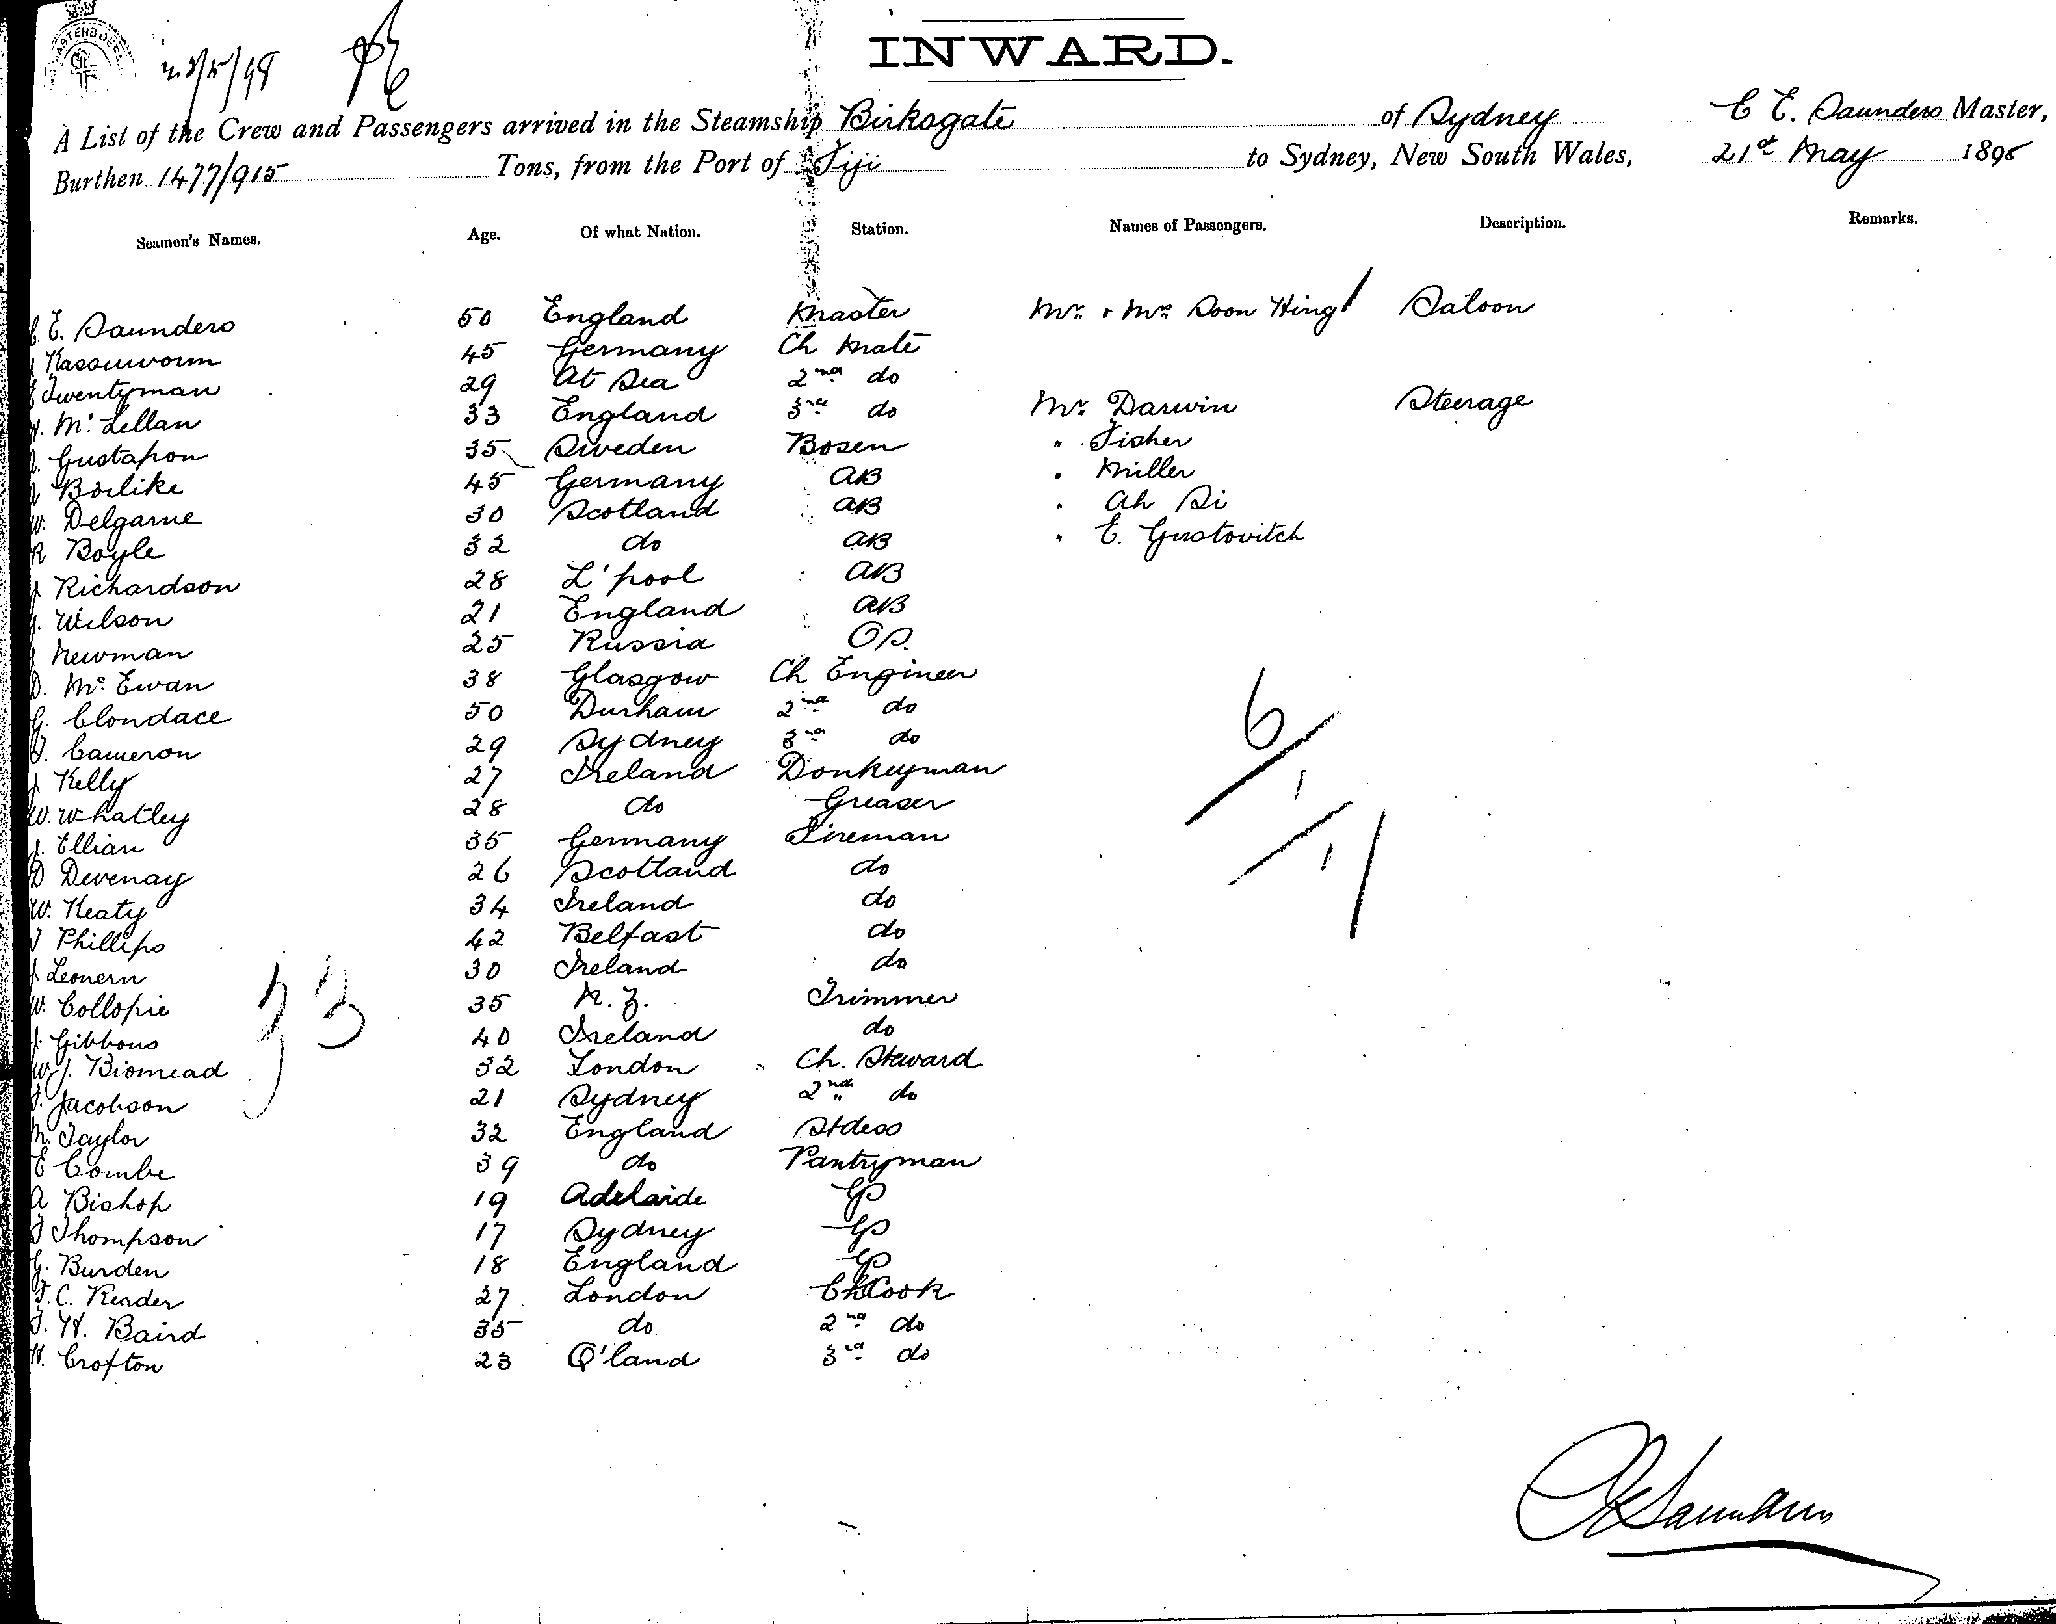 INWARD.
A List of the Crew and Passengers arrived in the Steamship Birksgate of Sydney C E. Saunders Master,
Burthen 1477/915 Tons, from the Port of Fiji to Sydney, New South Wales, 21st May 189
Seamen's Names. Age. Of what Nation. Station. Names of Passengers. Description. Remarks.
C E. Saunders 50 England Master Mr. & Mrs Soon Hing Saloon
45 Germany Ch Mate
Twentyman 29 At Sea 2nd do
McLellan 33 England 3rd do Mr. Darwin Steerage
Gustafson 35 Sweden Bosen " Fisher
45 Germany AB " Miller
W. Delgarne 30 Scotland AB " Ah Si
R Boyle 32 do AB " E. Gustovitch
J Richardson 28 L'pool AB
Wilson 21 England AB
J Newman 25 Russia OS.
D. McEwan 38 Glasgow Ch Engineer
G. Clondace 50 Durham 2nd do
Cameron 29 Sydney 3rd do
J Kelly 27 Ireland Donkeyman
W. Whatley 28 do Greaser
J. Ellian 35 Germany Fireman
D Devenay 26 Scotland do
W. Heaty 34 Ireland do
Phillips 42 Belfast do
J Leonern 30 Ireland do
W. Collopie 35 N. Z. Trimmer
J. Gibbons 40 Ireland do
W J. Biomead 32 London Ch. Steward
Jacobson 21 Sydney 2nd do
M. Taylor 32 England Stdess
E Combe 39 do Pantryman
A Bishop 19 Adelaide
Thompson 17 Sydney
G. Burden 18 England
F. C. Reader 27 London Ch Cook
H. Baird 35 do 2nd do
H. Crofton 23 Q'land 3rd do
33
6
1
1
1
C E Saunders